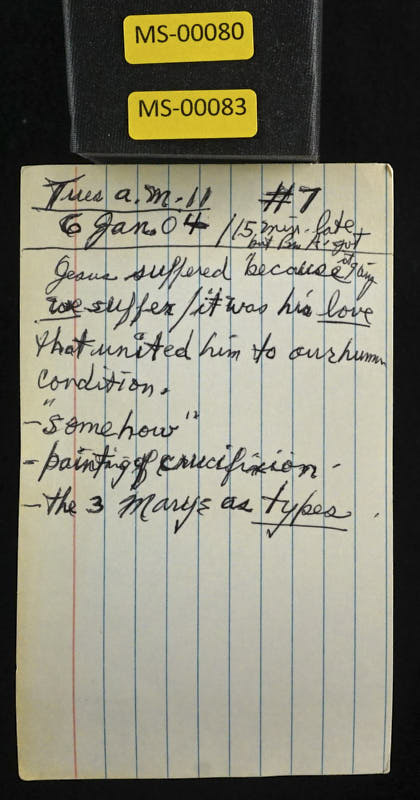 MS-00080
MS-00083
Tues a.m. 11 #7
6 Jan. 04 / 15 min. late
but Bro. A. got
it going
Jesus suffered because
we suffer / it was his love
that united him to our human
condition.
- "somehow"
- painting of crucifixion.
- the 3 Marys as types.